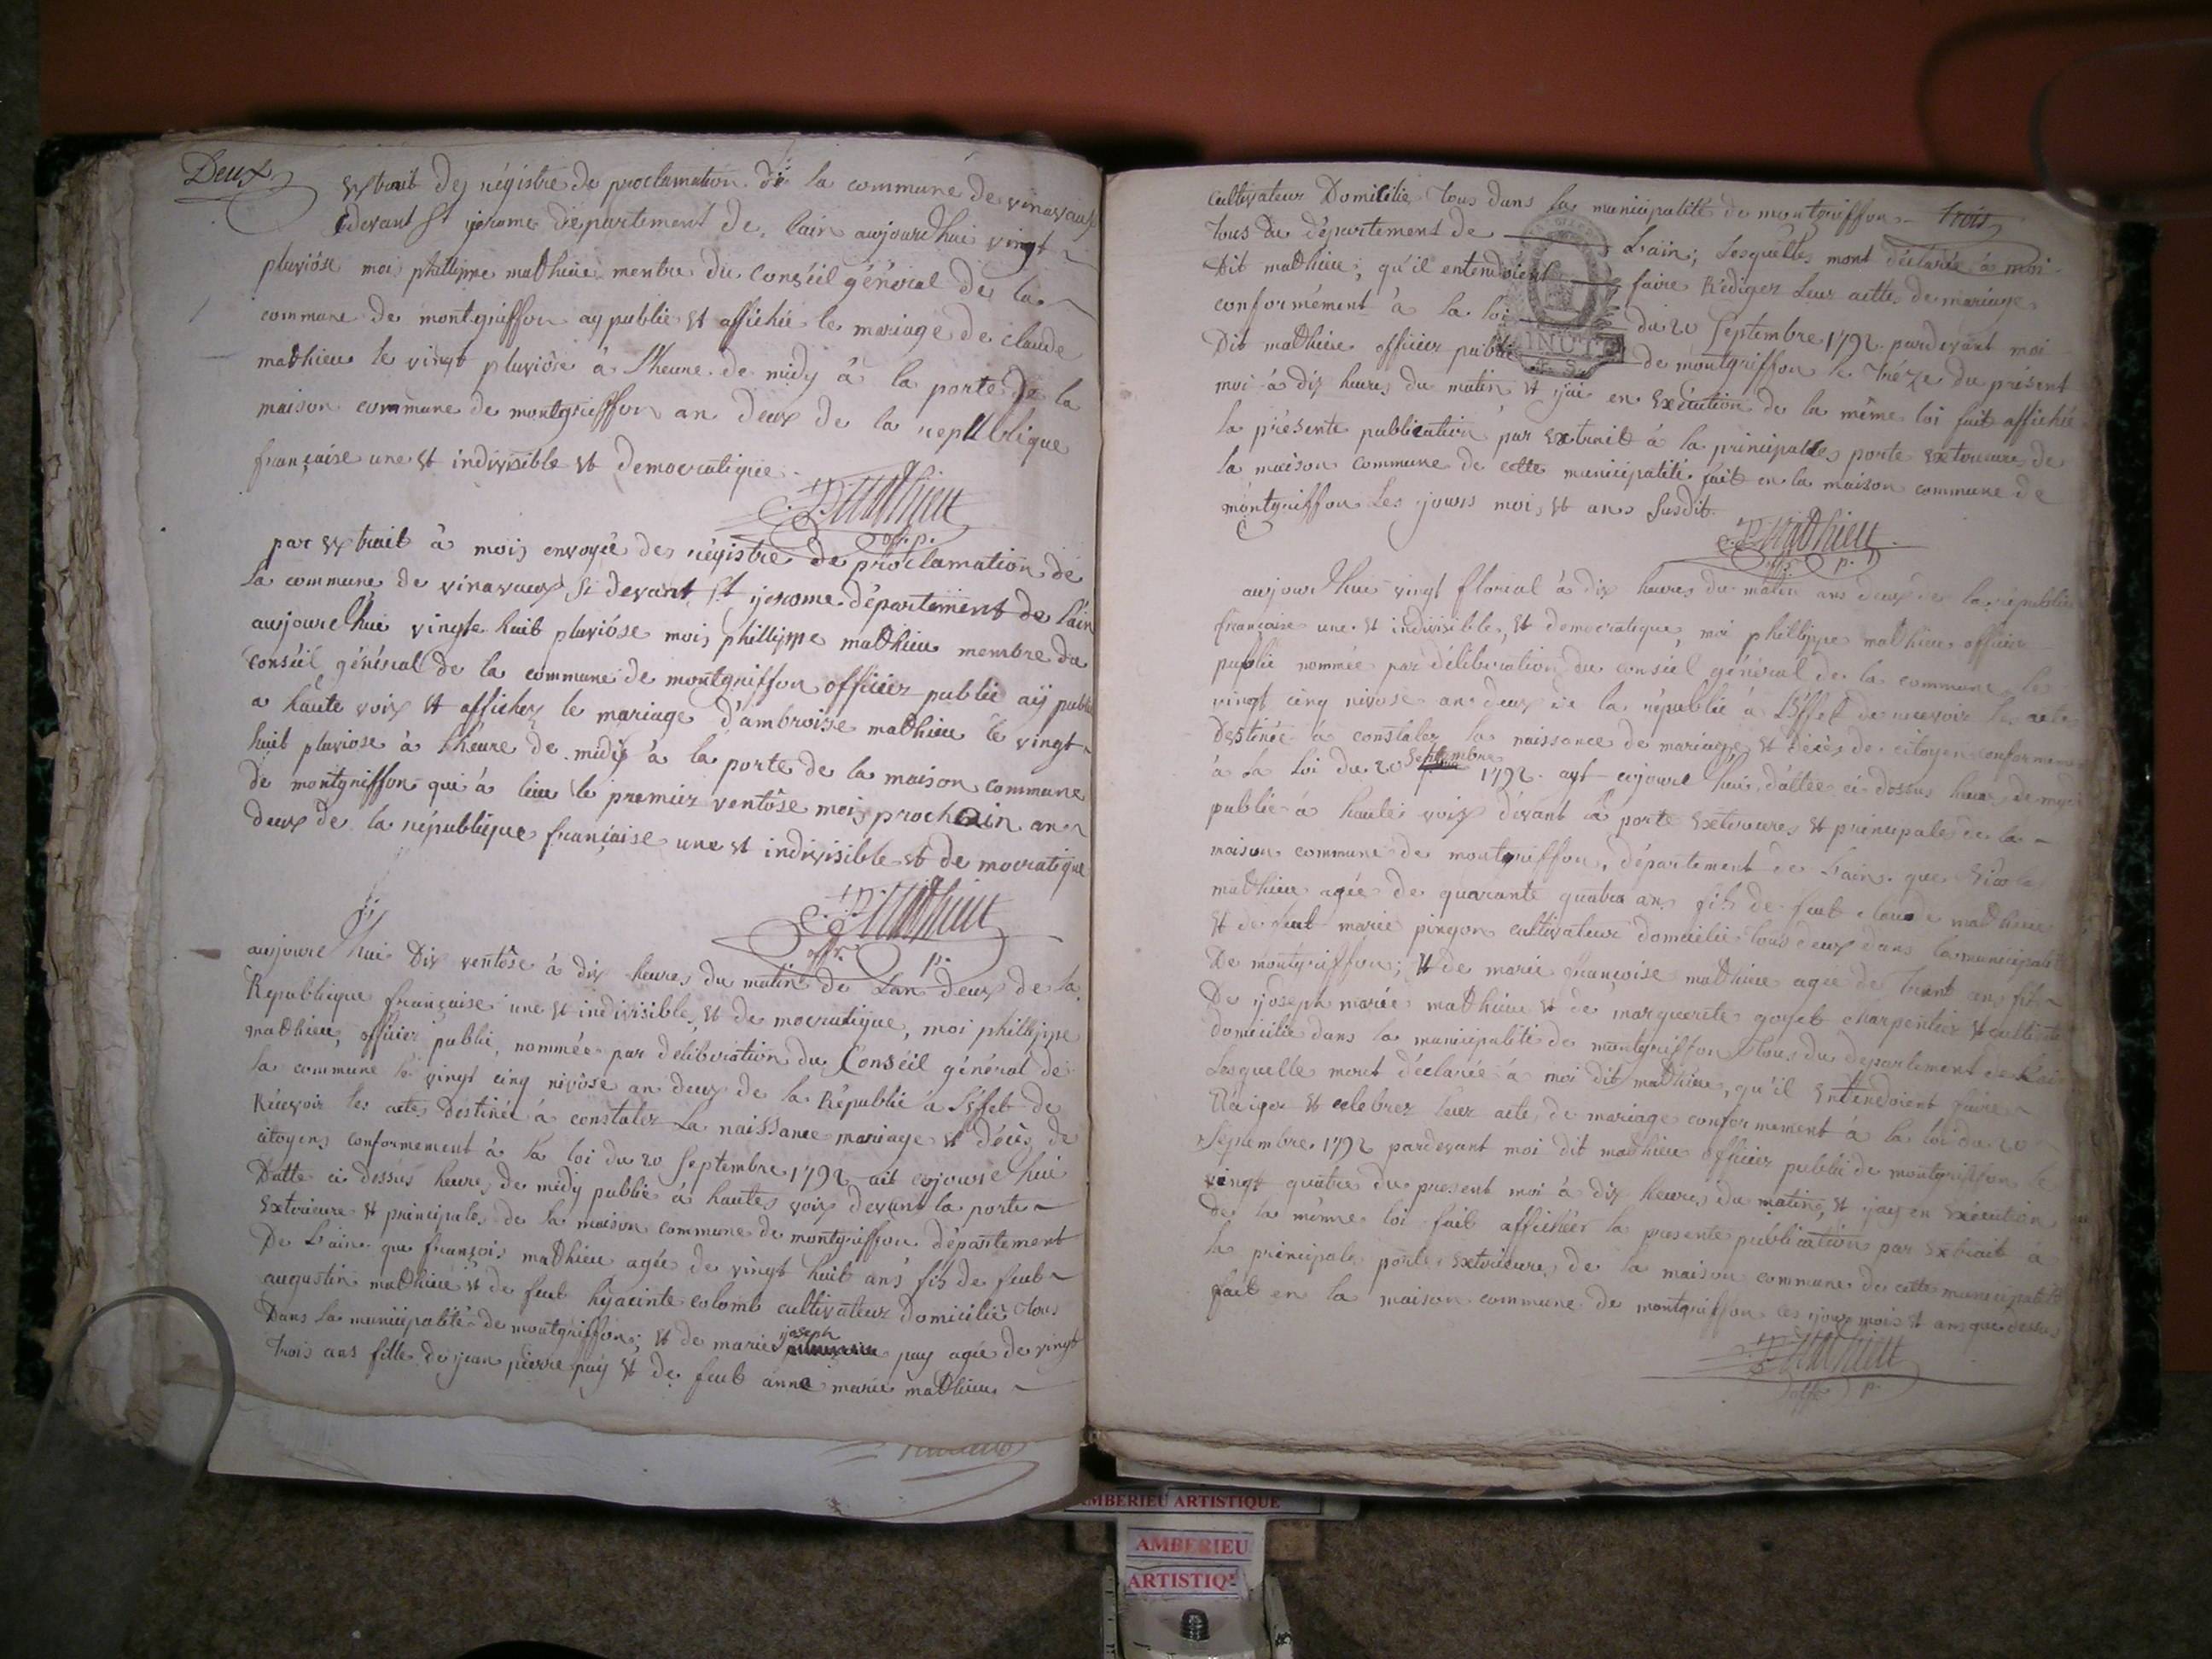 Deux
Extrait des régistre de proclamation dé la commune de vinavaux
cidevant St jerome département de lain aujourdhui vingt
pluviôse moi phillippe mathieu menbre du Conseil général de la
commune de montgriffon ay publié et affiché le mariage de claude
mathieu le vingt pluviôse à l'heure de midy à la porte de la
maison commune de montgriffon an deux de la republique
française une et indivisible et democratique
P. Mathieu
off. p.
par extrait à mois envoyé des régistre de proclamation de
la commune de vinavaux si devant St jerome département de l'ain
aujourdhui vingte huit pluviôse mois phillippe mathieu membre du
conseil général de la commune de montgriffon officier public aÿ publié
a haute voix et affichez le mariage d'ambroise mathieu le vingt
huit pluviose à l'heure de midis à la porte de la maison commune
de montgriffon qui à lieu le premier ventôse mois prochain an
deux de la république française une et indivisible et de mocratique
P. Mathieu
offr. p.
aujourdhui Dix ventôse à dix heures du matin de Lan deux de la
Republique française une et indivisible et de mocratique, moi phillippe
mathieu, officier public, nommée par deliberation du Conseil général de
la commune le vingt cinq nivôse an deux de la Républic a L'éffet de
Récevoir les actes destinée à constater La naissance mariage et décès de
citoyens conformement à la loi du 20 septembre 1792 ait aujourdhui
Datte ci dessus heures de midy publié à hautes voix devant la porte
Exterieure et principale de la maison commune de montgriffon département
De Lain que françois mathieu agée de vingt huit ans fils de feut
augustin mathieu et de feut hyacinte colomb cultivateur domicilié tous
Dans la municipalité de montgriffon; et de marie joseph pay agée de vingt
trois ans fille de jean pierre pay et de feut anne marie mathieu
cultivateur Domicilie tous dans la municipalité de montgriffon trois
tous du département de Lain; Lesquelles mont déclarée à moi
Dit mathieu; qu'il entendoient faire Rediger Leur acttes de mariage
conformément à la loi du 20 septembre 1792 pardevant moi
Dit mathieu officier public de montgriffon le treze du présent
moi à dix heures du matin et j'ai en exécution de la même loi fait affiché
la présente publication par extrait à la principalles porte exterieures de
la maison commune de cette municipalité fait en la maison commune de
montgriffon Les jours mois et ans susdit.
MINUT.
P. Mathieu
off. p.
aujourdhui vingt florial à dix heures du matin ans deux de la républic
française une et indivisible, et democratique, moi phillippe mathieu officier
public nommée par déliberation du conseil général de la commune le
vingt cinq nivose an deux de la républic à L'éffet de recevoir les actes
Destinée à constater la naissance de mariage et décès de citoyen conformément
à la Loi du 20 septembre 1792 ayt aujourdhui dattee ci dessus heures de midy
publié à haute voix dévant la porte extérieures et principale de la
maison commune de montgriffon, département de Lain que
mathieu agée de quarante quatre ans fils de feut claude mathieu
et de feut marie pingon cultivateur domicilié tous deux dans la municipalité
De montgriffon; et de marie françoise mathieu agée de trent ans fille
De joseph marie mathieu et de marguerite goyet charpentier et cultivateur
domicilié dans la municipalité de montgriffon tous du departement de Lain
Lesquelle mont déclarée à moi dit mathieu, qu'il Entendoient faire
Rediger et celebrer leur acte de mariage conformement à la loi du 20
septembre 1792 pardevant moi dit mathieu officier public de montgriffon le
vingt quatre du present moi à dix heures du matin, et jay en exécution
de la même loi fait affichér la presente publication par extrait à
la principale porte extérieure de la maison commune de cette municipalité
fait en la maison commune de montgriffon les jour mois et ans que dessus
P. Mathieu
offr. p.
AMBERIEU ARTISTIQUE
AMBERIEU
ARTISTIQUE